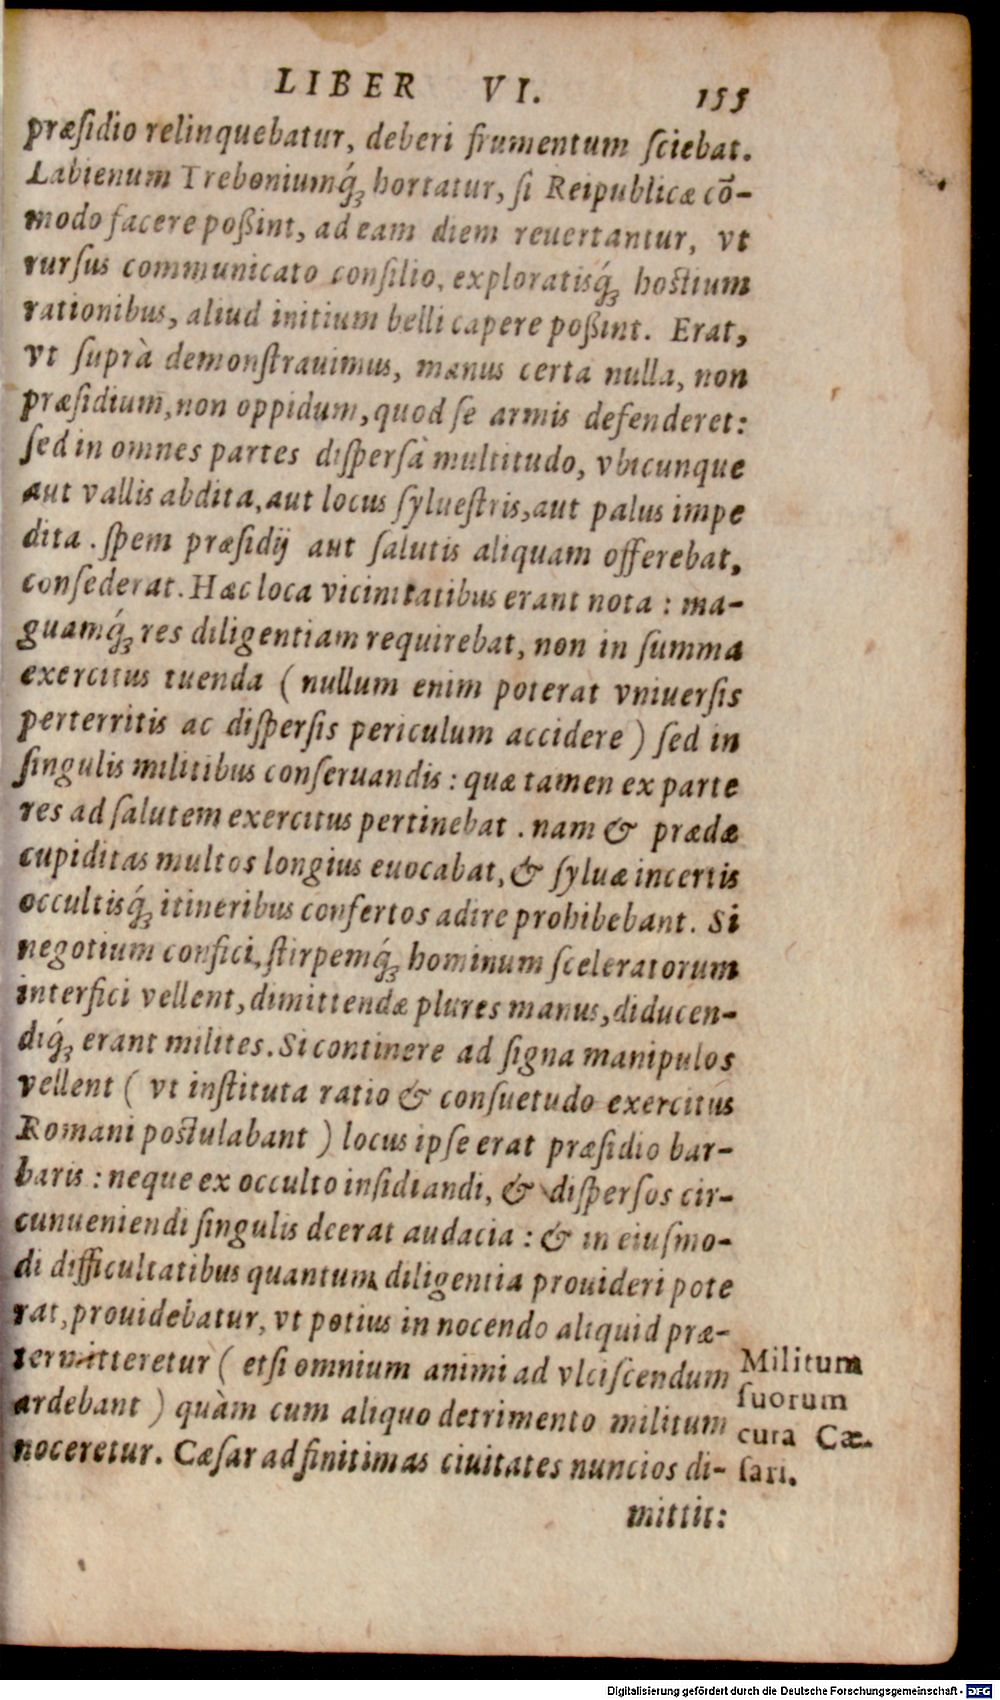 LIBER VI. 155
præſidio relinquebatur, deberi frumentum ſciebat.
Labienum Treboniumq́ꝫ hortatur, ſi Reipublicæ cō-
modo facere poßint, ad eam diem reuertantur, vt
rurſus communicato conſilio, exploratisq́ꝫ hostium
rationibus, aliud initium belli capere poßint. Erat,
vt ſuprà demonſtrauimus, manus certa nulla, non
præſidium, non oppidum, quod ſe armis defenderet:
ſed in omnes partes diſperſa multitudo, vbicunque
aut vallis abdita, aut locus ſylueſtris, aut palus impe
dita . ſpem præſidij aut ſalutis aliquam offerebat,
conſederat. Hæc loca vicinitatibus erant nota : ma-
guamq́ꝫ res diligentiam requirebat, non in ſumma
exercitus tuenda ( nullum enim poterat vniuerſis
perterritis ac diſperſis periculum accidere ) ſed in
ſingulis militibus conſeruandis : quæ tamen ex parte
res ad ſalutem exercitus pertinebat . nam & prædæ
cupiditas multos longius euocabat, & ſyluæ incertis
occultisq́ꝫ itineribus confertos adire prohibebant. Si
negotium confici, ſtirpemq́ꝫ hominum ſceleratorum
interfici vellent, dimittendæ plures manus, diducen-
diq́ꝫ erant milites. Si continere ad ſigna manipulos
vellent ( vt inſtituta ratio & conſuetudo exercitus
Romani postulabant ) locus ipſe erat præſidio bar-
baris : neque ex occulto inſidiandi, & diſperſos cir-
cunueniendi ſingulis deerat audacia : & in eiuſmo-
di difficultatibus quantum diligentia prouideri pote
rat, prouidebatur, vt potius in nocendo aliquid præ-
termitteretur ( etſi omnium animi ad vlciſcendum
ardebant ) quàm cum aliquo detrimento militum
noceretur. Cæſar ad finitimas ciuitates nuncios di-
mittit:
Militum
ſuorum
cura Cæ-
ſari.
Digitalisierung gefördert durch die Deutsche Forschungsgemeinschaft - DFG